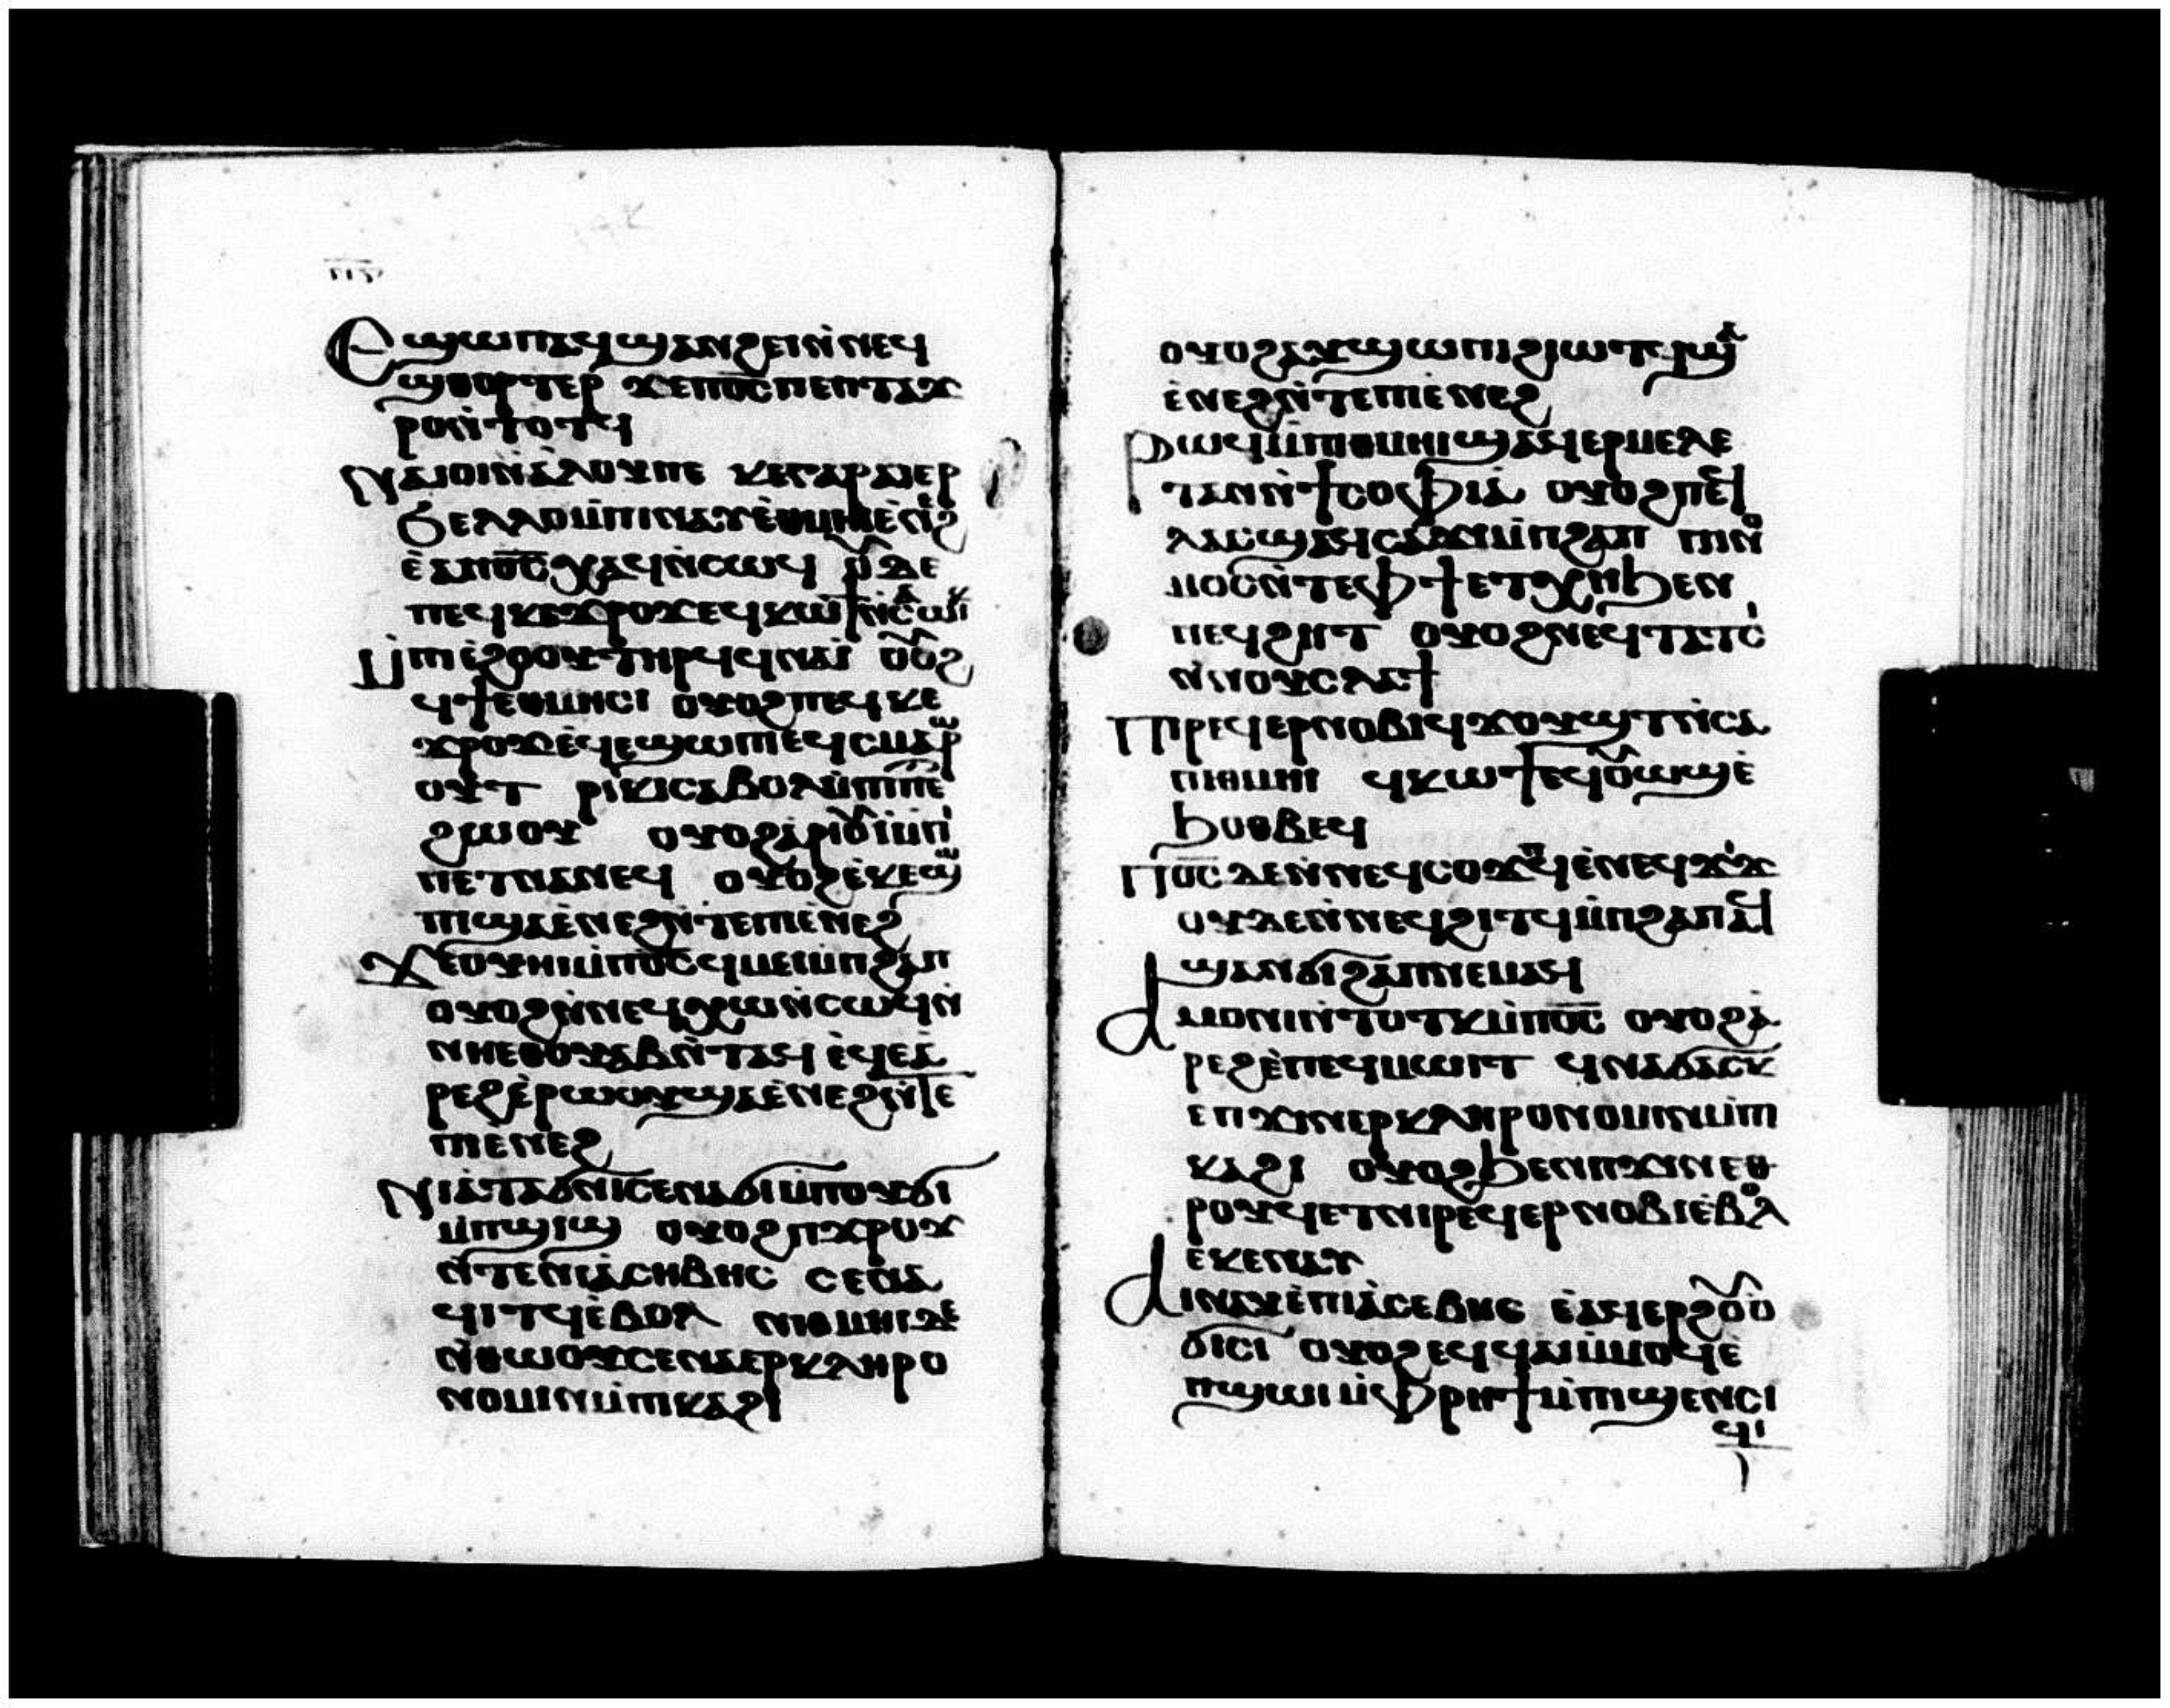 ⲡⲋ
Ⲉϣⲱⲡ ⲁϥϣⲁⲛϩⲉⲓ ⲛ̀ⲛⲉϥ
ϣⲑⲟⲣⲧⲉⲣ ϫⲉ ⲡⲟ̅ⲥ̅ ⲡⲉⲧⲧⲁϫ
ⲣⲟ ⲛ̀ⲧⲟⲧϥ
Ⲛⲁⲓⲟⲓ ⲛ̀ⲁⲗⲟⲩ ⲡⲉ ⲕⲉ ⲅⲁⲣ ⲁⲓⲉⲣ
ϧⲉⲗⲗⲟ ⲙ̀ⲡⲓⲛⲁⲩ ⲉ̀ⲑⲙⲏⲓ ⲉ̀ⲛⲉϩ
ⲉ̀ⲁ ⲡⲟ̅ⲥ̅ ⲭⲁϥ ⲛ̀ⲥⲱϥ ⲟⲩⲇⲉ
ⲡⲉϥⲕⲉϫⲣⲟϫ ⲉϥⲕⲱϯ ⲛ̀ⲥⲁ ⲱⲓⲕ
Ⲙ̀ⲡⲓⲉ̀ϩⲟⲟⲩ ⲧⲏⲣϥ ϥⲛⲁⲓ ⲟⲩⲟϩ
ϥϯ ⲉ̀ⲑⲙⲏⲥⲓ ⲟⲩⲟϩ ⲡⲉϥⲕⲉ
ϫⲣⲟϫ ⲉ̀ϥⲉϣⲱⲡⲓ ⲉϥⲥⲙⲁⲣⲱ
ⲟⲩⲧ ⲣⲓⲕⲓ ⲥⲁⲃⲟⲗ ⲙ̀ⲡⲓⲡⲉⲧ
ϩⲱⲟⲩ ⲟⲩⲟϩ ⲁ̀ⲣⲓⲟⲩⲓ̀ ⲙ̀ⲡⲓ
ⲡⲉⲑⲛⲁⲛⲉϥ ⲟⲩⲟϩ ⲉ̀ⲕⲉϣⲱ
ⲡⲓ ϣⲁ ⲉ̀ⲛⲉϩ ⲛ̀ⲧⲉ ⲡⲓⲉ̀ⲛⲉϩ
Ϫⲉ ⲟⲩⲏⲓ ⲙ̀ⲡⲟ̅ⲥ̅ ϥⲙⲉⲓ ⲙ̀ⲡϩⲁⲡ
ⲟⲩⲟϩ ⲛ̀ⲛⲉϥⲭⲱ ⲛ̀ⲥⲱϥ ⲛ̀
ⲛⲏⲉⲑⲟⲩⲁⲃ ⲛ̀ⲧⲁϥ ⲉ̀ϥⲉⲁ̀
ⲣⲉϩ ⲉ̀ⲣⲱⲟⲩ ϣⲁ ⲉ̀ⲛⲉϩ ⲛ̀ⲧⲉ
ⲡⲓⲉ̀ⲛⲉϩ
Ⲛⲓⲁ̀ⲧⲁϭⲛⲓ ⲥⲉⲛⲁϭⲓ ⲙ̀ⲡⲟⲩϭⲓ
ⲙ̀ⲡϣⲓϣ ⲟⲩⲟϩ ⲡϫⲣⲟϫ
ⲛ̀ⲧⲉ ⲛⲓⲁ̀ⲥⲏⲃⲏⲥ ⲥⲉⲛⲁ
ϥⲓⲧϥ ⲉ̀ⲃⲟⲗ ⲛⲓⲑⲙⲏⲓ ⲇⲉ
ⲛ̀ⲑⲱⲟⲩ ⲥⲉⲛⲁⲉⲣⲕⲗⲏⲣⲟ
ⲛⲟⲙⲓⲛ ⲙ̀ⲡⲕⲁϩⲓ
ⲟⲩⲟϩ ⲁⲩϣⲱⲡⲓ ϩⲓⲱⲧϥ ϣⲁ
ⲉ̀ⲛⲉϩ ⲛ̀ⲧⲉ ⲡⲓⲉ̀ⲛⲉϩ
Ⲣⲱϥ ⲙ̀ⲡⲓⲑⲙⲏⲓ ϣⲁϥⲉⲣⲙⲉⲗⲉ
ⲧⲁⲛ ⲛ̀ϯⲥⲟⲫⲓⲁ̀ ⲟⲩⲟϩ ⲡⲉϥ
ⲗⲁⲥ ϣⲁϥⲥⲁϫⲓ ⲙ̀ⲡϩⲁⲡ ⲡⲓⲛⲟ
ⲙⲟⲥ ⲛ̀ⲧⲉ ⲫϯ ⲉⲧⲭⲏ ϧⲉⲛ
ⲡⲉϥϩⲏⲧ ⲟⲩⲟϩ ⲛⲉϥⲧⲁⲧⲥⲓ
ⲛ̀ⲛⲟⲩⲥⲗⲁϯ
Ⲡⲓⲣⲉϥⲉⲣⲛⲟⲃⲓ ϥϫⲟⲩϣⲧ ⲛ̀ⲥⲁ
ⲡⲓⲑⲙⲏⲓ ϥⲕⲱϯ ⲉϥⲟⲩⲱϣ ⲉ̀
ϧⲟⲑⲃⲉϥ
Ⲡⲟ̅ⲥ̅ ⲇⲉ ⲛ̀ⲛⲉϥⲥⲟϫⲡϥ ⲉ̀ⲛⲉϥϫⲓϫ
ⲟⲩⲇⲉ ⲛ̀ⲛⲉϥϩⲓⲧϥ ⲙ̀ⲡϩⲁⲡ ⲁϥ
ϣⲁⲛϭⲓϩⲁⲡ ⲛⲉⲙⲁϥ
Ⲁⲙⲟⲛⲓ ⲛ̀ⲧⲟⲧⲕ ⲙ̀ⲡⲟ̅ⲥ̅ ⲟⲩⲟϩ ⲁ̀
ⲣⲉϩ ⲉ̀ⲡⲉϥⲙⲱⲓⲧ ϥⲛⲁϭⲁⲥⲕ
ⲉⲡϫⲓⲛⲉⲣⲕⲗⲏⲣⲟⲛⲟⲙⲓⲛ ⲙ̀ⲡ
ⲕⲁϩⲓ ⲟⲩⲟϩ ϧⲉⲛ ⲡϫⲓⲛⲉⲑ
ⲣⲟⲩϥⲉⲧ ⲛⲓⲣⲉϥⲉⲣⲛⲟⲃⲓ ⲉ̀ⲃⲟⲗ
ⲉⲕⲉⲛⲁⲩ
Ⲁⲓⲛⲁⲩ ⲉ̀ⲡⲓⲁ̀ⲥⲉⲃⲏⲥ ⲉ̀ⲁϥⲉⲣϩⲟⲩⲟ̀
ϭⲓⲥⲓ ⲟⲩⲟϩ ⲉϥϥⲁⲓ ⲙ̀ⲙⲟϥ ⲉ̀
ⲡϣⲱⲓ ⲙ̀ⲫⲣⲏϯ ⲙ̀ⲡⲓϣⲉⲛⲥⲓ
ϥⲓ